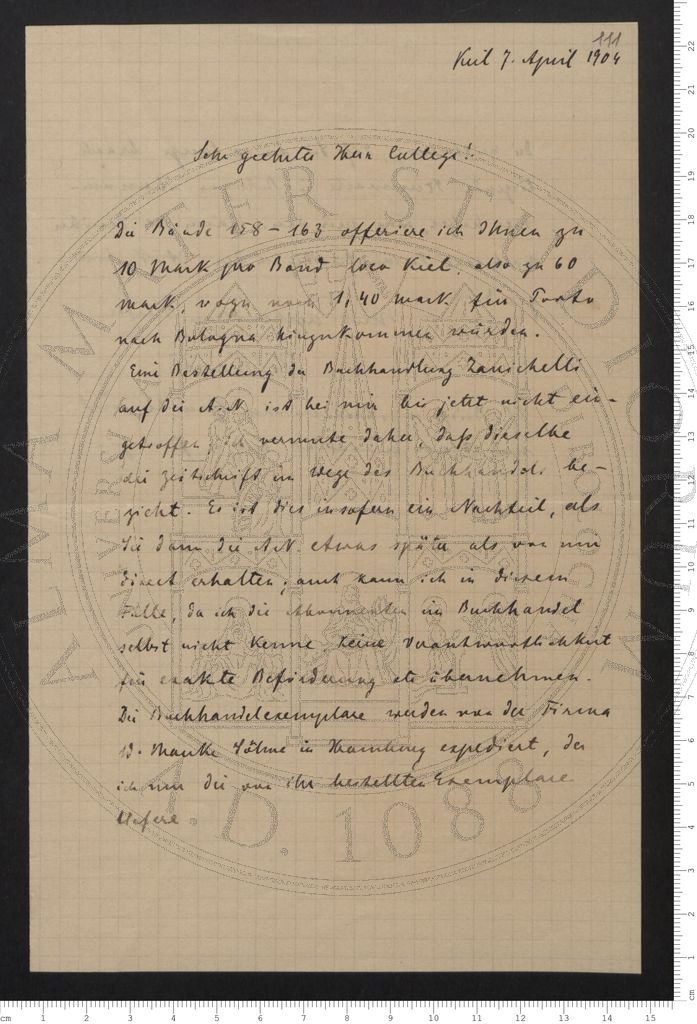 111
Kiel 7. April 1904
Sehr geehrter Herr College!
Die Bände 158 – 163 offeriere ich Ihnen zu
10 Mark pro Band loco Kiel, also zu 60
Mark, wozu noch 1,40 Mark für Porto
nach Bologna hinzukommen würden.
Eine Bestellung der Buchhandlung Zanichelli
auf die A.N. ist bei mir bis jetzt nicht ein-
getroffen, ich vermute daher, daß dieselbe
die Zeitschrift im Wege des Buchhandels be-
zieht. Es ist dies insofern ein Nachteil, als
Sie dann die A.N. etwas später als von mir
direct erhalten; auch kann ich in diesem
Falle, da ich die Abonnenten im Buchhandel
selbst nicht kenne, keine Verantwortlichkeit
für exakte Beförderung etc übernehmen.
Die Buchhandelexemplare werden von der Firma
W. Mauke Söhne in Hamburg expediert, der
ich nur die von ihr bestellten Exemplare
liefere.
ALMA MATER STUDIORUM
A.D. 1088